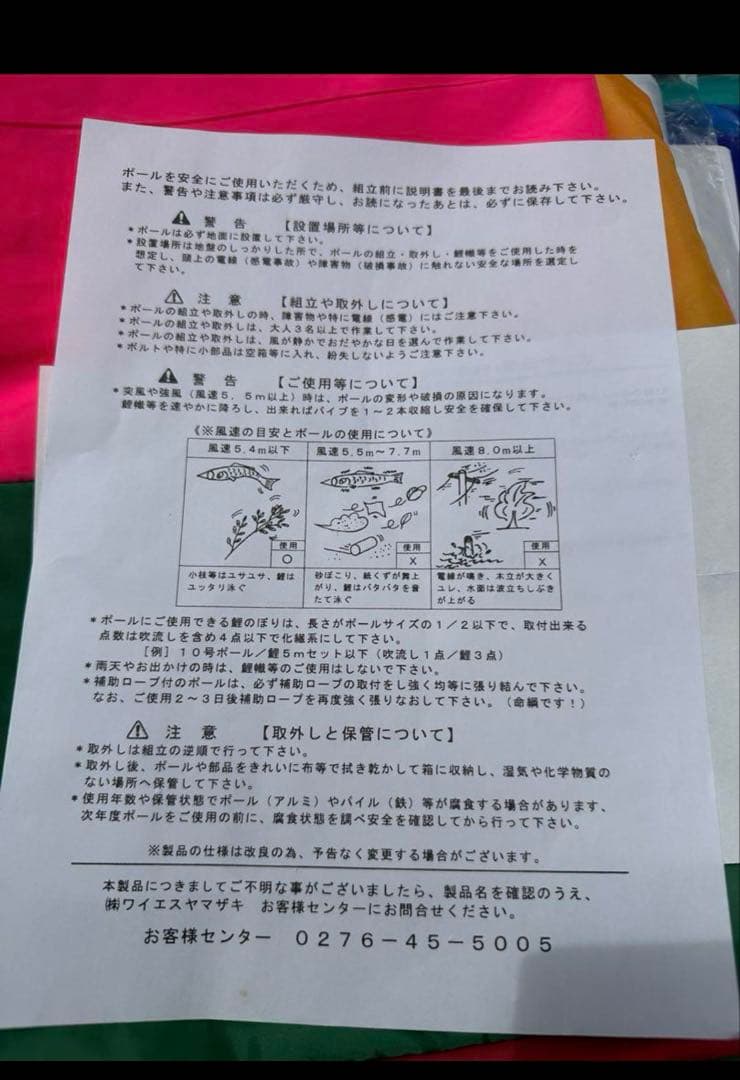 ポールを安全にご使用いただくため、組立前に説明書を最後までお読み下さい。
また、警告や注意事項は必ず厳守し、お読になったあとは、必ずに保存して下さい。
⚠ 警 告 【設置場所等について】
*ポールは必ず地面に設置して下さい。
*設置場所は地盤のしっかりした所で、ポールの組立・取外し・鯉幟等をご使用した時を
想定し、頭上の電線（感電事故）や障害物（破損事故）に触れない安全な場所を選定し
て下さい。
⚠ 注 意 【組立や取外しについて】
*ポールの組立や取外しの時、障害物や特に電線（感電）にはご注意下さい。
*ポールの組立や取外しは、大人３名以上で作業して下さい。
*ポールの組立や取外しは、風が静かでおだやかな日を選んで作業して下さい。
*ボルトや特に小部品は空箱等に入れ、紛失しないようご注意下さい。
⚠ 警 告 【ご使用等について】
*突風や強風（風速５．５ｍ以上）時は、ポールの変形や破損の原因になります。
鯉幟等を速やかに降ろし、出来ればパイプを１～２本収縮し安全を確保して下さい。
《※風速の目安とポールの使用について》
風速５.４ｍ以下 風速５.５ｍ～７.７ｍ 風速８.０ｍ以上
使用 使用 使用
○ X X
小枝等はユサユサ、鯉は 砂ぼこり、紙くずが舞上 電線が鳴き、木立が大きく
ユッタリ泳ぐ がり、鯉はバタバタを音 ユレ、水面は波立ちしぶき
たて泳ぐ が上がる
*ポールにご使用できる鯉のぼりは、長さがポールサイズの１／２以下で、取付出来る
点数は吹流しを含め４点以下で化繊系にして下さい。
［例］１０号ポール／鯉５ｍセット以下（吹流し１点／鯉３点）
*雨天やお出かけの時は、鯉幟等のご使用はしないで下さい。
*補助ロープ付のポールは、必ず補助ロープの取付をし強く均等に張り結んで下さい。
なお、ご使用２～３日後補助ロープを再度強く張りなおして下さい。（命綱です！）
⚠ 注 意 【取外しと保管について】
*取外しは組立の逆順で行って下さい。
*取外し後、ポールや部品をきれいに布等で拭き乾かして箱に収納し、湿気や化学物質の
ない場所へ保管して下さい。
*使用年数や保管状態でポール（アルミ）やパイル（鉄）等が腐食する場合があります、
次年度ポールをご使用の前に、腐食状態を調べ安全を確認してから行って下さい。
※製品の仕様は改良の為、予告なく変更する場合がございます。
本製品につきましてご不明な事がございましたら、製品名を確認のうえ、
㈱ワイエスヤマザキ お客様センターにお問合せください。
お客様センター ０２７６－４５－５００５